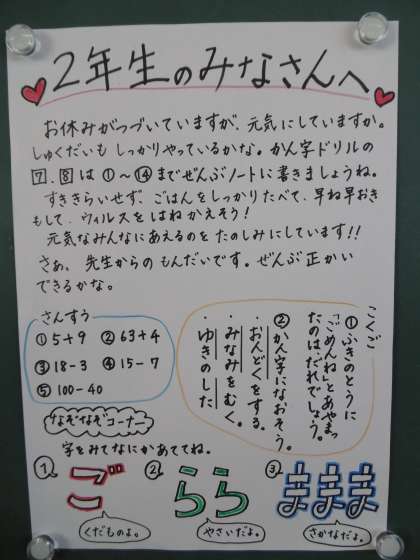 2年生のみなさんへ
お休みがつづいていますが、元気にしていますか。
しゅくだいも しっかりやっているかな。かん字ドリルの
7、8は①〜⑭までぜんぶノートに書きましょうね。
すききらいせず、ごはんをしっかりたべて、早ね早おき
もして、ウィルスをはねかえそう!
元気なみんなにあえるのを たのしみにしています!!
さぁ、先生からの もんだいです。ぜんぶ正かい
できるかな。
さんすう
① 5+9 ② 63+4
③ 18-3 ④ 15-7
⑤ 100-40
こくご
①ふきのとうに
「ごめんね」とあやまっ
たのは、だれでしょう。
②かん字になおそう。
・おんどくをする。
・みなみをむく。
・ゆきのした
なぞなぞコーナー
字をみてなにかあててね。
1 ご
くだものよ。
2 らら
やさいだよ。
3 ままま
さかなだよ。